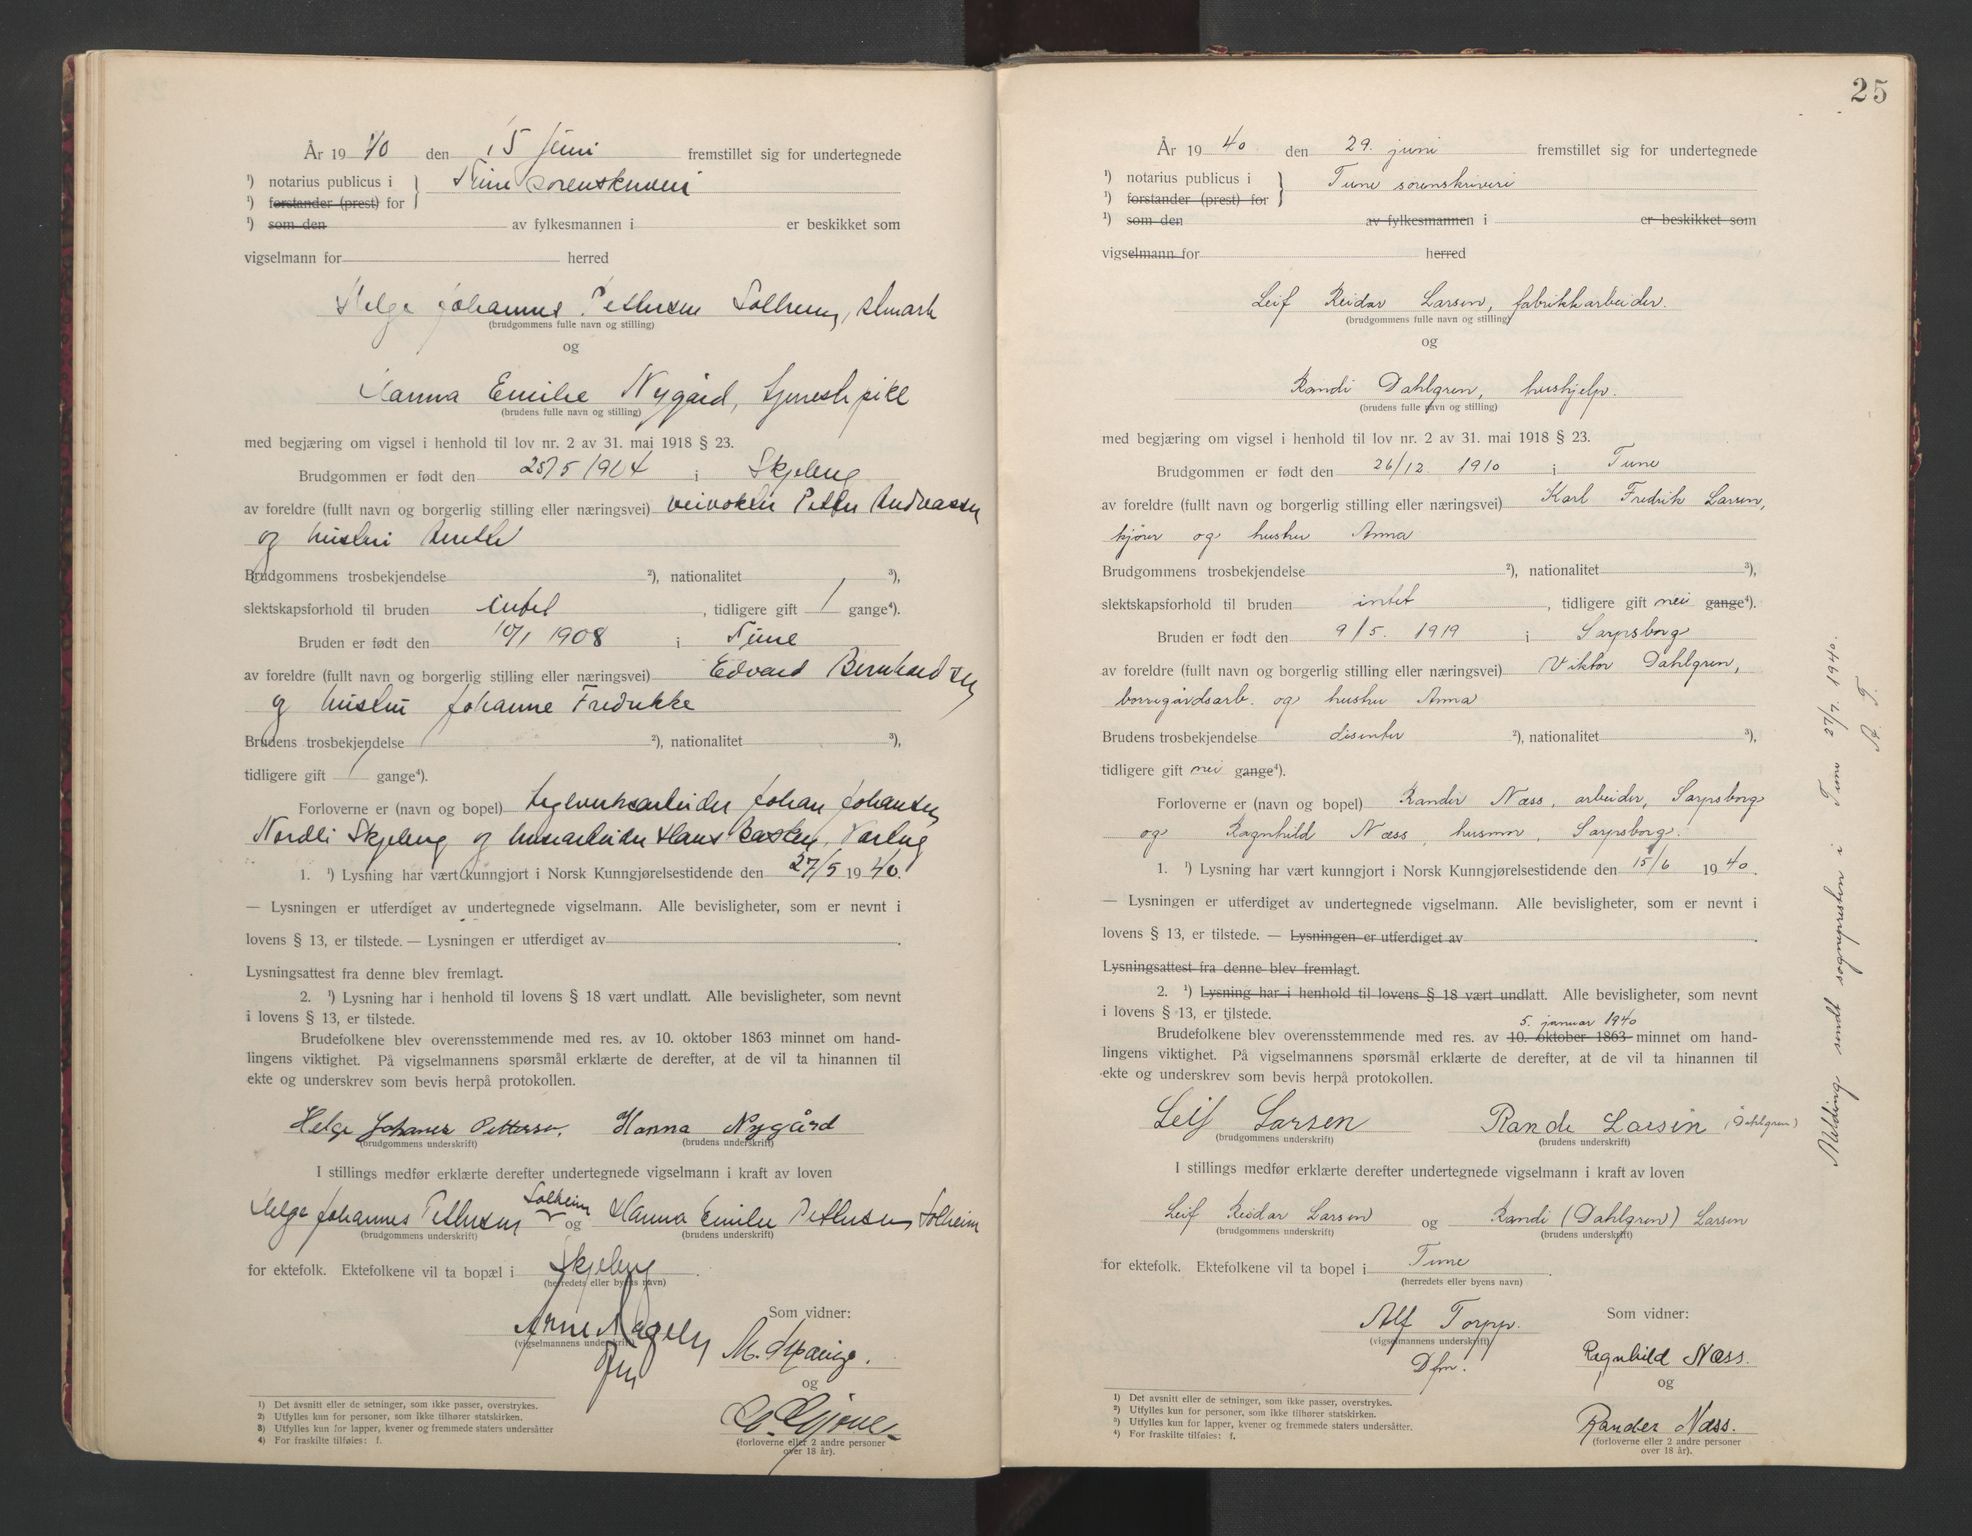 År 19 40 den 15 juni fremstillet sig for undertegnede
¹) notarius publicus i } Tune sorenskriveri
¹) forstander (prest) for
¹) som den av fylkesmannen i er beskikket som
vigselmann for herred
Helge Johannes Pettersen Solheim,
(brudgommens fulle navn og stilling)
og
Hanna Emilie Nygård, tjenestepike
(brudens fulle navn og stilling)
med begjæring om vigsel i henhold til lov nr. 2 av 31. mai 1918 § 23.
Brudgommen er født den 25/5 1904 i Skjeberg
av foreldre (fullt navn og borgerlig stilling eller næringsvei) veivokter Petter Andreassen
og hustru
Brudgommens trosbekjendelse ²), nationalitet ³),
slektskapsforhold til bruden intet, tidligere gift / gange⁴).
Bruden er født den 10/1 1908 i Tune
av foreldre (fullt navn og borgerlig stilling eller næringsvei) Edvard Bernhardsen
og hustru Johanne Fredrikke
Brudens trosbekjendelse ²), nationalitet ³),
tidligere gift / gange⁴).
Forloverne er (navn og bopel) teglverksarbeider Johan Johansen
Nordli Skjeberg og Hans Varteig
1. ¹) Lysning har vært kunngjort i Norsk Kunngjørelsestidende den 27/5 1940.
— Lysningen er utferdiget av undertegnede vigselmann. Alle bevisligheter, som er nevnt i
lovens § 13, er tilstede. — Lysningen er utferdiget av .
Lysningsattest fra denne blev fremlagt.
2. ¹) Lysning har i henhold til lovens § 18 vært undlatt. Alle bevisligheter, som nevnt
i lovens § 13, er tilstede.
Brudefolkene blev overensstemmende med res. av 10. oktober 1863 minnet om hand-
lingens viktighet. På vigselmannens spørsmål erklærte de derefter, at de vil ta hinannen til
ekte og underskrev som bevis herpå protokollen.
Helge Johanes Petterse. Hanna Nygård
(brudgommens underskrift) (brudens underskrift)
I stillings medfør erklærte derefter undertegnede vigselmann i kraft av loven
Solheim
Helge Johannes Pettersen og Hanna Emilie Pettersen Solheim
(brudgommens underskrift) (brudens underskrift)
for ektefolk. Ektefolkene vil ta bopæl i Skjeberg.
(herredets eller byens navn)
Som vidner:
Arne
(vigselmannens underskrift)
M.
og
(forloverne eller 2 andre personer
over 18 år).
1) Det avsnitt eller de setninger, som ikke passer, overstrykes.
2) Utfylles kun for personer, som ikke tilhører statskirken.
3) Utfylles kun for lapper, kvener og fremmede staters undersåtter
4) For fraskilte tilføies: f.
25
År 19 40 den 29. juni fremstillet sig for undertegnede
¹) notarius publicus i } Tune sorenskriveri
¹) forstander (prest) for
¹) som den av fylkesmannen i er beskikket som
vigselmann for herred
Leif Reidar Larsen, fabrikkarbeider.
(brudgommens fulle navn og stilling)
og
Randi Dahlgren, hushjelp.
(brudens fulle navn og stilling)
med begjæring om vigsel i henhold til lov nr. 2 av 31. mai 1918 § 23.
Brudgommen er født den 26/12. 1910 i Tune
av foreldre (fullt navn og borgerlig stilling eller næringsvei) Karl Fredrik Larsen,
kjører og hustru Anna
Brudgommens trosbekjendelse ²), nationalitet ³),
slektskapsforhold til bruden intet, tidligere gift nei gange⁴).
Bruden er født den 9/5. 1919 i Sarpsborg
av foreldre (fullt navn og borgerlig stilling eller næringsvei) Viktor Dahlgren,
borregårdsarb. og hustru Anna
Brudens trosbekjendelse disenter ²), nationalitet ³),
tidligere gift nei gange⁴).
Forloverne er (navn og bopel) Rander Næss, arbeider, Sarpsborg
og Ragnhild Næss, husmor, Sarpsborg.
1. ¹) Lysning har vært kunngjort i Norsk Kunngjørelsestidende den 15/6 1940.
— Lysningen er utferdiget av undertegnede vigselmann. Alle bevisligheter, som er nevnt i
lovens § 13, er tilstede. — Lysningen er utferdiget av .
Lysningsattest fra denne blev fremlagt.
2. ¹) Lysning har i henhold til lovens § 18 vært undlatt. Alle bevisligheter, som nevnt
i lovens § 13, er tilstede.
5. januar 1940
Brudefolkene blev overensstemmende med res. av 10. oktober 1863 minnet om hand-
lingens viktighet. På vigselmannens spørsmål erklærte de derefter, at de vil ta hinannen til
ekte og underskrev som bevis herpå protokollen.
Leif Larsen Randi Larsen (Dahlgren)
(brudgommens underskrift) (brudens underskrift)
I stillings medfør erklærte derefter undertegnede vigselmann i kraft av loven
Leif Reidar Larsen og Randi (Dahlgren) Larsen
(brudgommens underskrift) (brudens underskrift)
for ektefolk. Ektefolkene vil ta bopel i Tune.
(herredets eller byens navn)
Alf Torpp. Som vidner:
(vigselmannens underskrift)
Dfm. Ragnhild Næss.
og
Rander Næss.
(forloverne eller 2 andre personer
over 18 år).
1) Det avsnitt eller de setninger, som ikke passer, overstrykes.
2) Utfylles kun for personer, som ikke tilhører statskirken.
3) Utfylles kun for lapper, kvener og fremmede staters undersåtter.
4) For fraskilte tilføies: f.
Melding sendt sognepresten i Tune 27/7. 1940.
A. T.